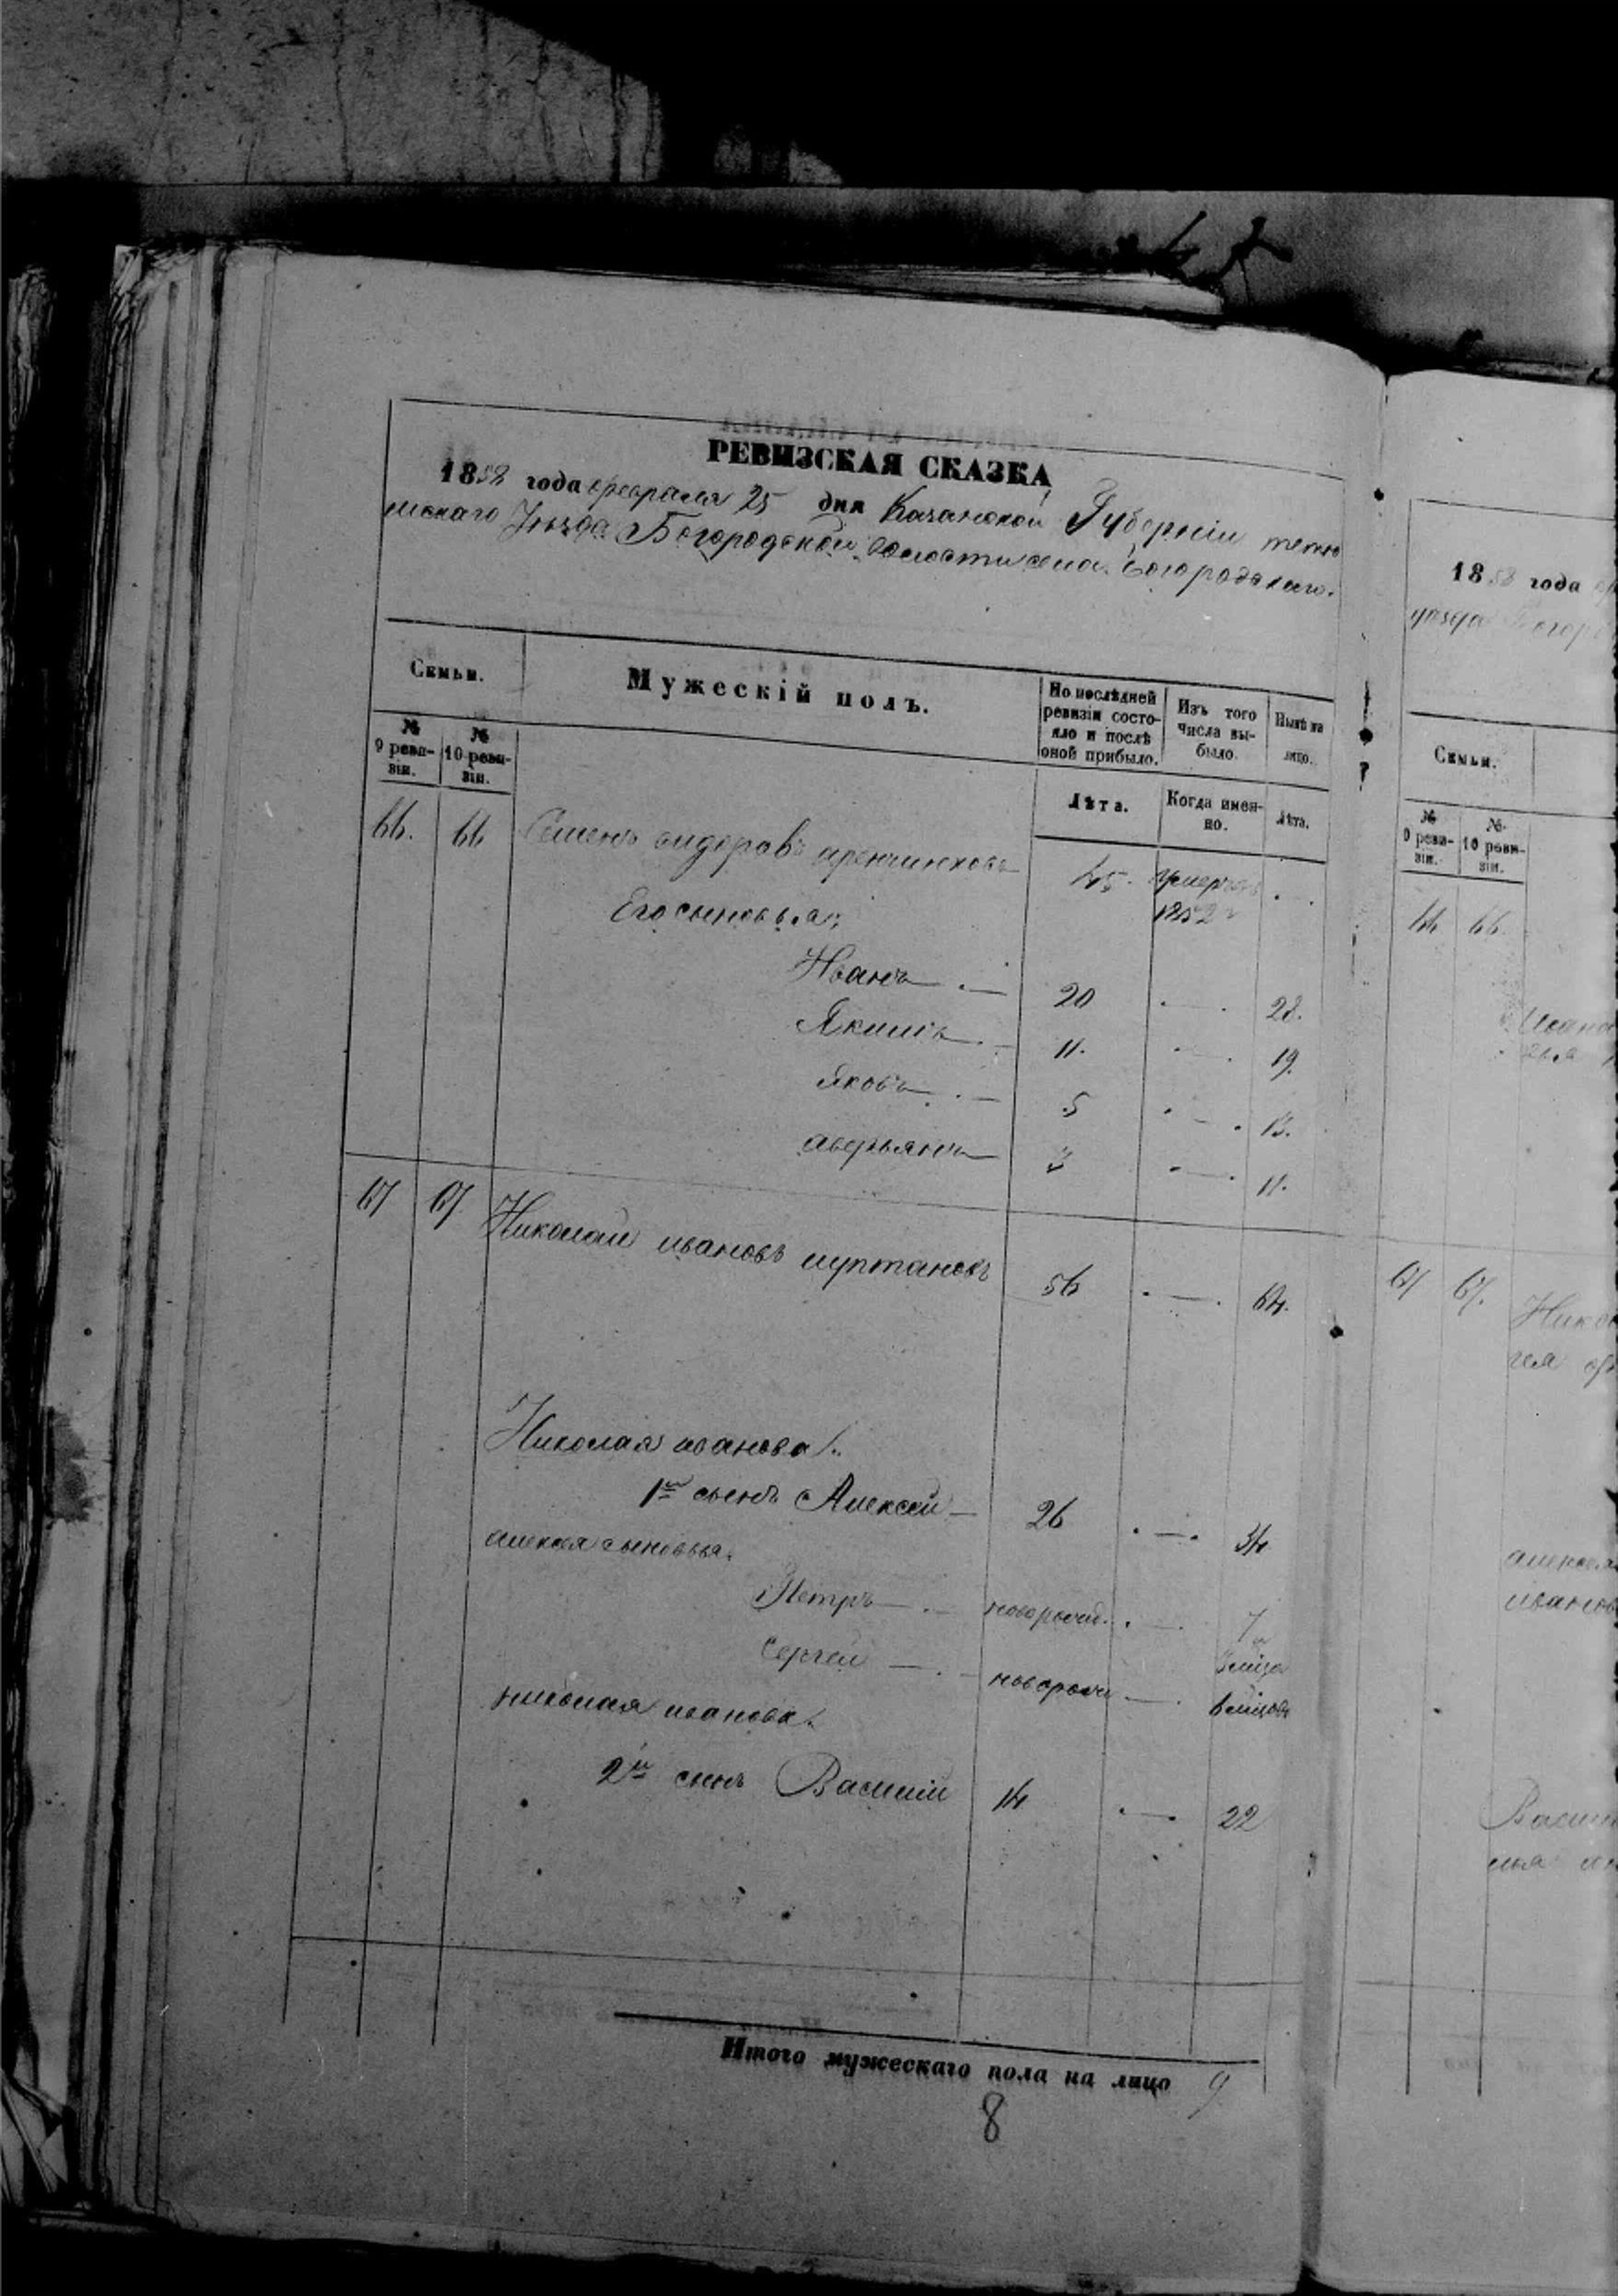 РЕВИЗСКАЯ СКАЗКА
1858 года февраля 25 дня Казанской Губернiи тетю
шскаго Уѣзда Богородской волости села Богородскаго.
Семьи.
Мужескiй полъ.
По послѣдней ревизiи состояло и послѣ оной прибыло.
Изъ того числа выбыло.
Нынѣ на лицо.
№ 9 ревизiи.
№ 10 ревизiи.
Лѣта.
Когда именно.
Лѣта.
66. 66 Семенъ сидоровъ 45. умеръ
Его сыновья: 1852
Иванъ 20 28.
Якимъ 11. 19.
Яковъ 5 13.
аверьянъ 3 11.
67 67 Николай ивановъ 56 64.
Николая иванова
1й сынъ Алексей 26 34
алексея сыновья.
Петръ новорожд. 7
Сергей новорож
николая иванова.
2й сынъ Василiй 14 22
Итого мужескаго пола на лицо 9
8
1858 года
уѣзда Богор
Семьи.
№ 9 ревизiи.
№ 10 ревизiи.
66 66
67 67.
Нико
алексея
иванов
Васил